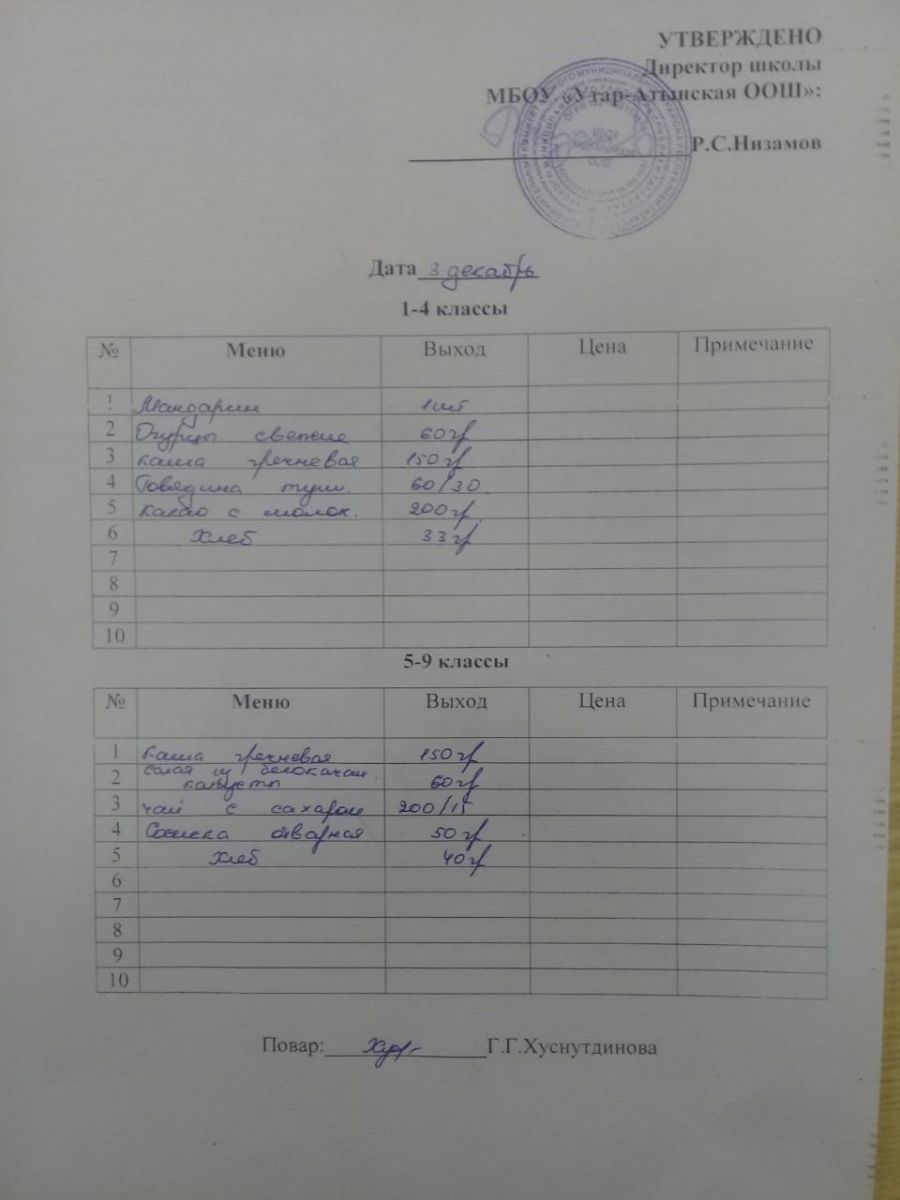 УТВЕРЖДЕНО
Директор школы
МБОУ «Утар-Атынская ООШ»:
Р.С.Низамов
Дата 3 декабрь
1-4 классы
№ Меню Выход Цена Примечание
1 Мандарин 1шт
2 Огурцы свежие 60гр
3 каша гречневая 150гр
4 Говядина туш. 60/30
5 какао с молок. 200гр
6 Хлеб 33гр
7
8
9
10
5-9 классы
№ Меню Выход Цена Примечание
1 каша гречневая 150гр
салат из белокачан.
2 капусты 60гр
3 чай с сахаром 200/15
4 Сосиска отварная 50гр
5 Хлеб 40гр
6
7
8
9
10
Повар: Г.Г.Хуснутдинова